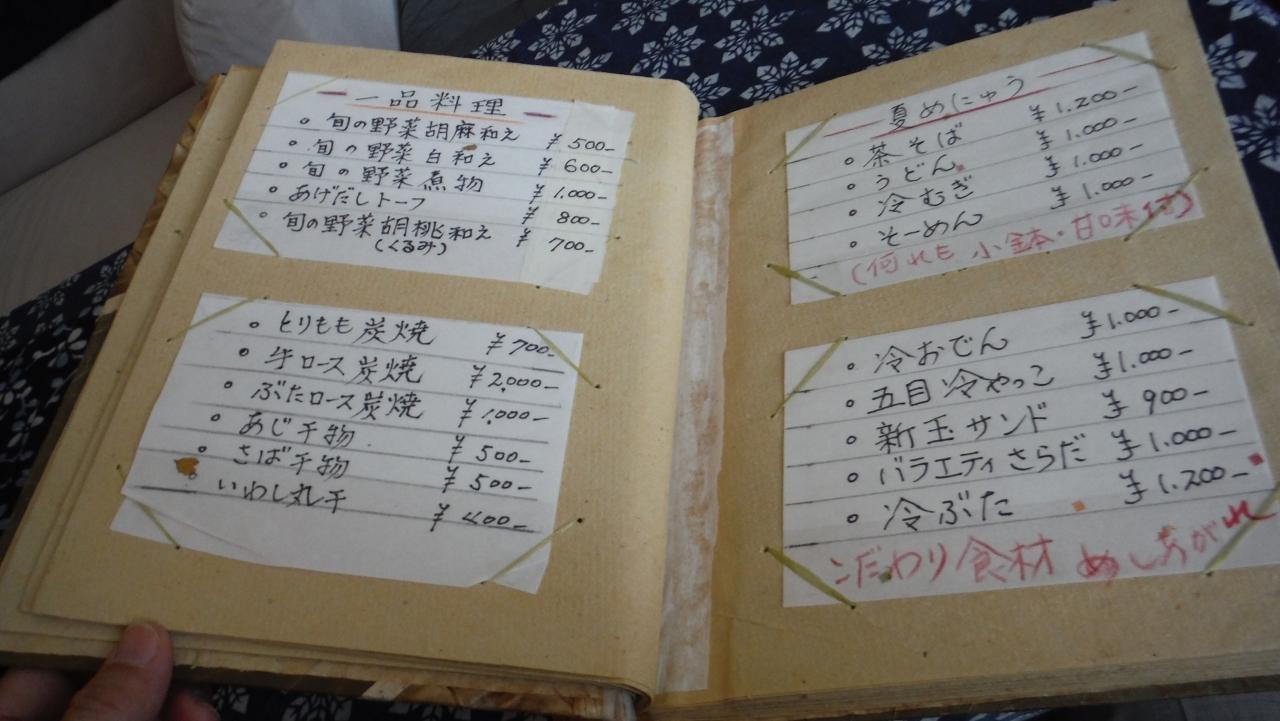 一品料理
。旬の野菜胡麻和え ¥500-
。旬の野菜白和え ¥600-
。旬の野菜煮物 ¥1,000-
。あげだしトーフ ¥800-
。旬の野菜胡桃和え ¥700-
(くるみ)
。とりもも炭焼 ¥700-
。牛ロース炭焼 ¥2,000-
。ぶたロース炭焼 ¥1,000-
。あじ干物 ¥500-
。さば干物 ¥500-
いわし丸干 ¥400-
夏めにゅう
。茶そば ¥1.200-
。うどん ¥1.000-
。冷むぎ ¥1.000-
。そーめん ¥1.000-
(何れも小鉢・甘味付)
。冷おでん ¥1.000-
。五目冷やっこ ¥1.000-
。新玉サンド ¥900-
。バラエティさらだ ¥1.000-
。冷ぶた ¥1.200-
こだわり食材 めしあがれ